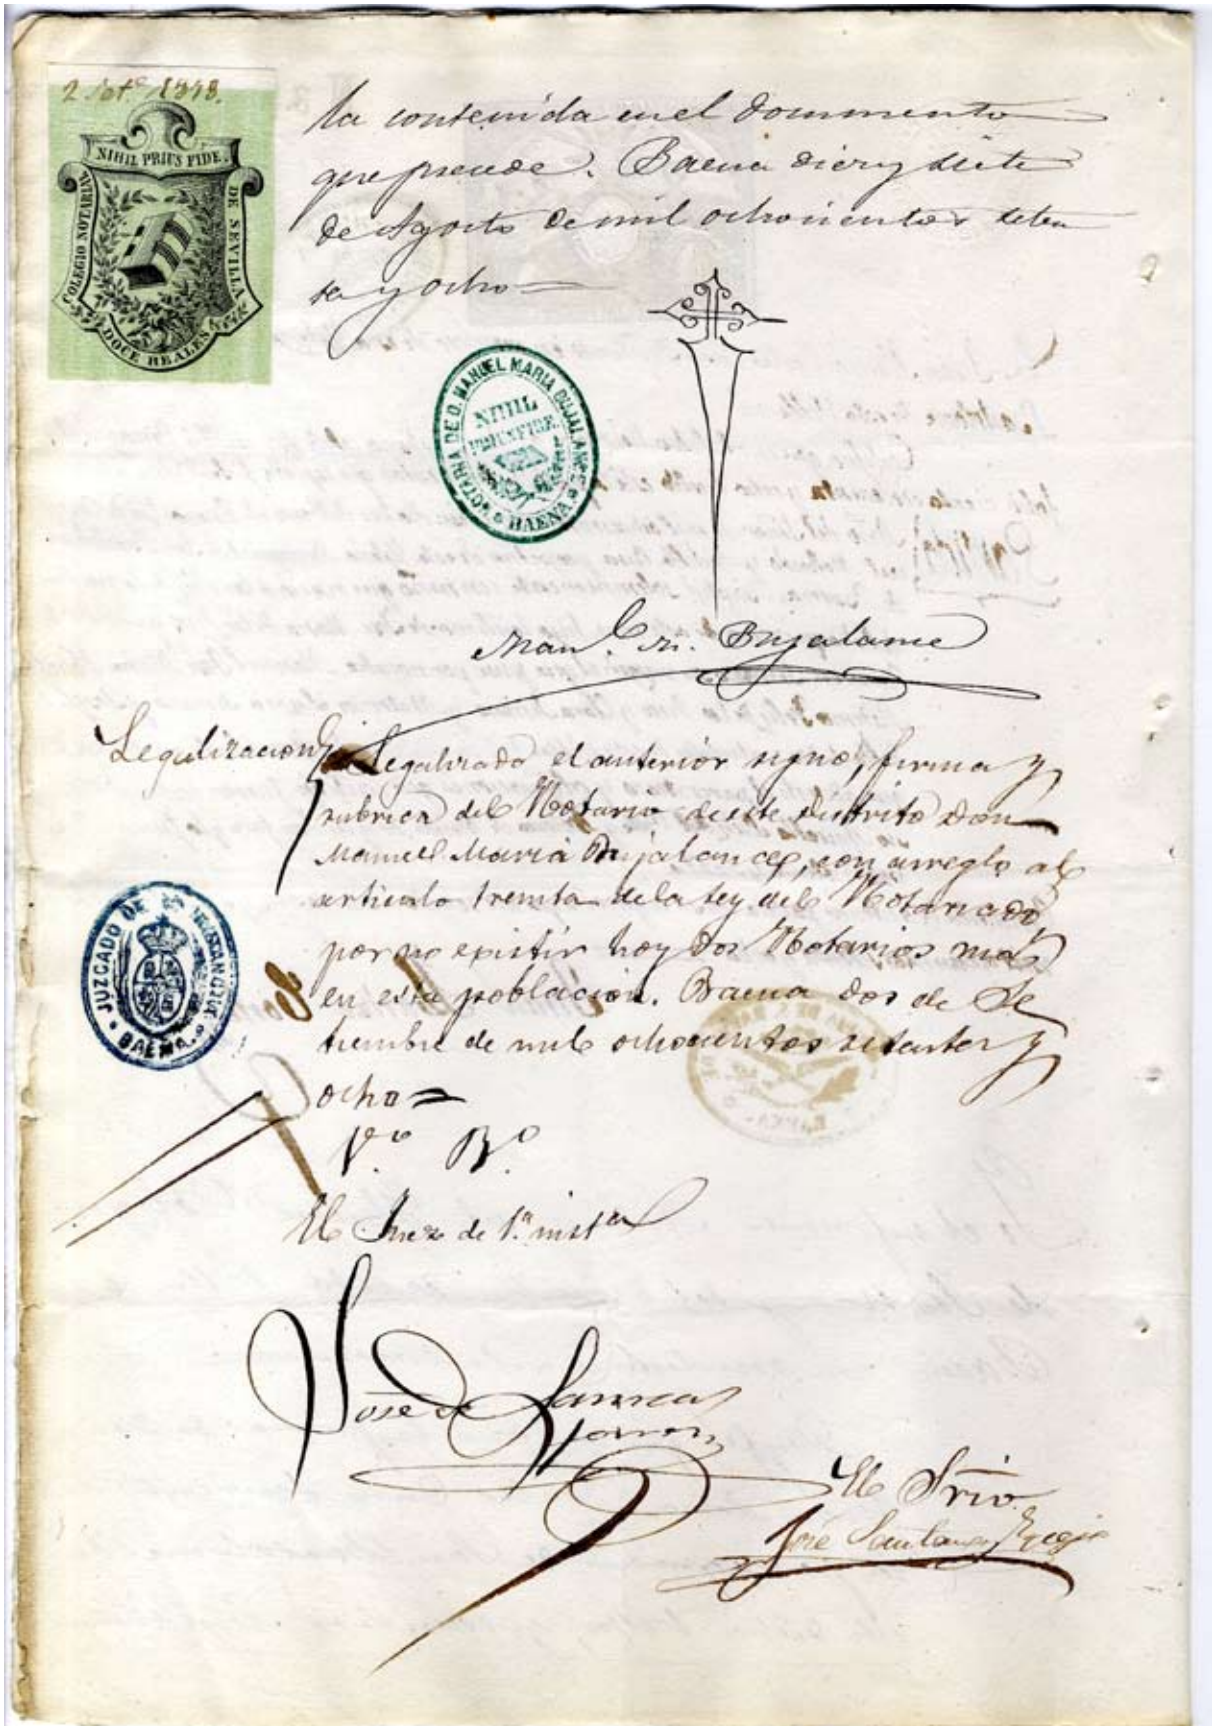 2 Set.e 1878.
NIHIL PRIUS FIDE.
COLEGIO NOTARIAL
DE SEVILLA
DOCE REALES
la contenida en el documento
que precede. Baena diez y siete
de Agosto de mil ochocientos seten
ta y ocho=
NOTARIA DE D. MANUEL MARIA BUJALANCE
NIHIL
PRIUS FIDE
BAENA
Man.l M. Bujalance
Legalizacion
Legalizado el anterior signo, firma y
rubrica del Notario de este distrito Don
Manuel Maria Bujalance, con arreglo al
articulo treinta de la ley del Notariado
por no existir hoy dos Notarios mas
en esta poblacion. Baena dos de Se
tiembre de mil ochocientos setenta y
ocho=
V.o B.o
El Juez de 1.a inst.a
JUZGADO DE 1ª INSTANCIA
BAENA.
José de
El Srio.
José Santana